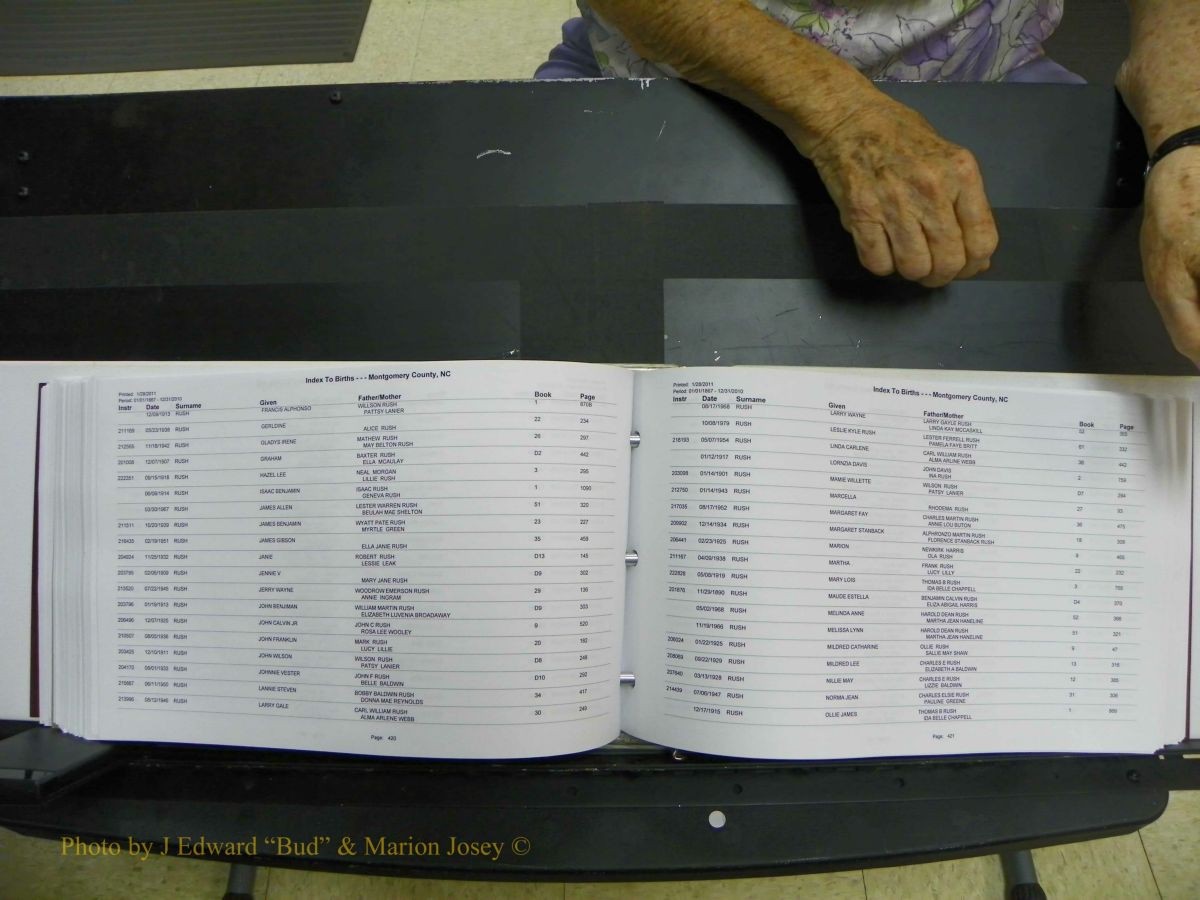 Index To Births - - - Montgomery County, NC
Printed: 1/28/2011
Period: 01/01/1867 - 12/31/2010
Instr Date Surname Given Father/Mother Book Page
12/09/1913 RUSH FRANCIS ALPHONSO WILLSON RUSH 1 870B
PATTSY LANIER
211169 05/23/1938 RUSH GERLDINE 22 234
ALICE RUSH
212565 11/18/1942 RUSH GLADYS IRENE MATHEW RUSH 26 297
MAY BELTON RUSH
201008 12/07/1907 RUSH GRAHAM BAXTER RUSH D2 442
ELLA MCAULAY
222251 09/15/1918 RUSH HAZEL LEE NEAL MORGAN 3 295
LILLIE RUSH
06/09/1914 RUSH ISAAC BENJAMIN ISAAC RUSH 1 1090
GENEVA RUSH
03/30/1967 RUSH JAMES ALLEN LESTER WARREN RUSH 51 320
BEULAH MAE SHELTON
211511 10/20/1939 RUSH JAMES BENJAMIN WYATT PATE RUSH 23 227
MYRTLE GREEN
216435 02/19/1951 RUSH JAMES GIBSON 35 459
ELLA JANIE RUSH
204924 11/25/1932 RUSH JANIE ROBERT RUSH D13 145
LESSIE LEAK
203795 02/06/1909 RUSH JENNIE V D9 302
MARY JANE RUSH
213520 07/22/1945 RUSH JERRY WAYNE WOODROW EMERSON RUSH 29 136
ANNIE INGRAM
203796 01/19/1913 RUSH JOHN BENJIMAN WILLIAM MARTIN RUSH D9 303
ELIZABETH LUVENIA BROADAWAY
206496 12/07/1925 RUSH JOHN CALVIN JR JOHN C RUSH 9 520
ROSA LEE WOOLEY
210507 08/02/1936 RUSH JOHN FRANKLIN MARK RUSH 20 182
LUCY LILLIE
203425 12/10/1911 RUSH JOHN WILSON WILSON RUSH D8 248
PATSY LANIER
204170 RUSH JOHNNIE VESTER JOHN F RUSH D10 292
BELLE BALDWIN
RUSH LANNIE STEVEN BOBBY BALDWIN RUSH 34 417
DONNA MAE REYNOLDS
213996 RUSH LARRY GALE CARL WILLIAM RUSH 30 249
ALMA ARLENE WEBB
Page: 420
Index To Births - - - Montgomery County, NC
Printed: 1/28/2011
Period: 01/01/1867 - 12/31/2010
Instr Date Surname Given Father/Mother Book Page
08/17/1968 RUSH LARRY WAYNE LARRY GAYLE RUSH
LINDA KAY MCCASKILL
10/08/1979 RUSH LESLIE KYLE RUSH LESTER FERRELL RUSH 61 332
PAMELA FAYE BRITT
218193 05/07/1954 RUSH LINDA CARLENE CARL WILLIAM RUSH 38 442
ALMA ARLINE WEBB
01/12/1917 RUSH LORNZIA DAVIS JOHN DAVIS 2 759
INA RUSH
203098 01/14/1901 RUSH MAMIE WILLETTE WILSON RUSH D7 284
PATSY LANIER
212750 01/14/1943 RUSH MARCELLA 27 33
RHODEMA RUSH
217035 08/17/1952 RUSH MARGARET FAY CHARLES MARTIN RUSH 36 475
ANNIE LOU BUTON
209902 12/14/1934 RUSH MARGARET STANBACK ALPHRONZO MARTIN RUSH 18 339
FLORENCE STANBACK RUSH
206441 02/23/1925 RUSH MARION NEWKIRK HARRIS 9 465
OLA RUSH
211167 04/09/1938 RUSH MARTHA FRANK RUSH 22 232
LUCY LILLY
222826 05/08/1919 RUSH MARY LOIS THOMAS B RUSH 3
IDA BELLE CHAPPELL
201870 11/29/1890 RUSH MAUDE ESTELLA BENJAMIN CALVIN RUSH D4 370
ELIZA ABIGAIL HARRIS
05/02/1968 RUSH MELINDA ANNE HAROLD DEAN RUSH 52
MARTHA JEAN HANELINE
11/19/1966 RUSH MELISSA LYNN HAROLD DEAN RUSH 51 321
MARTHA JEAN HANELINE
206024 01/22/1925 RUSH MILDRED CATHARINE OLLIE RUSH 9 47
SALLIE MAY SHAW
208069 09/22/1929 RUSH MILDRED LEE CHARLES E RUSH 13 316
ELIZABETH A BALDWIN
207640 03/13/1928 RUSH NILLIE MAY CHARLES E RUSH 12 385
LIZZIE BALDWIN
214439 07/06/1947 RUSH NORMA JEAN CHARLES ELSIE RUSH 31 306
PAULINE GREENE
12/17/1915 RUSH OLLIE JAMES THOMAS B RUSH 1
IDA BELLE CHAPPELL
Page: 421
Photo by J Edward “Bud” & Marion Josey ©